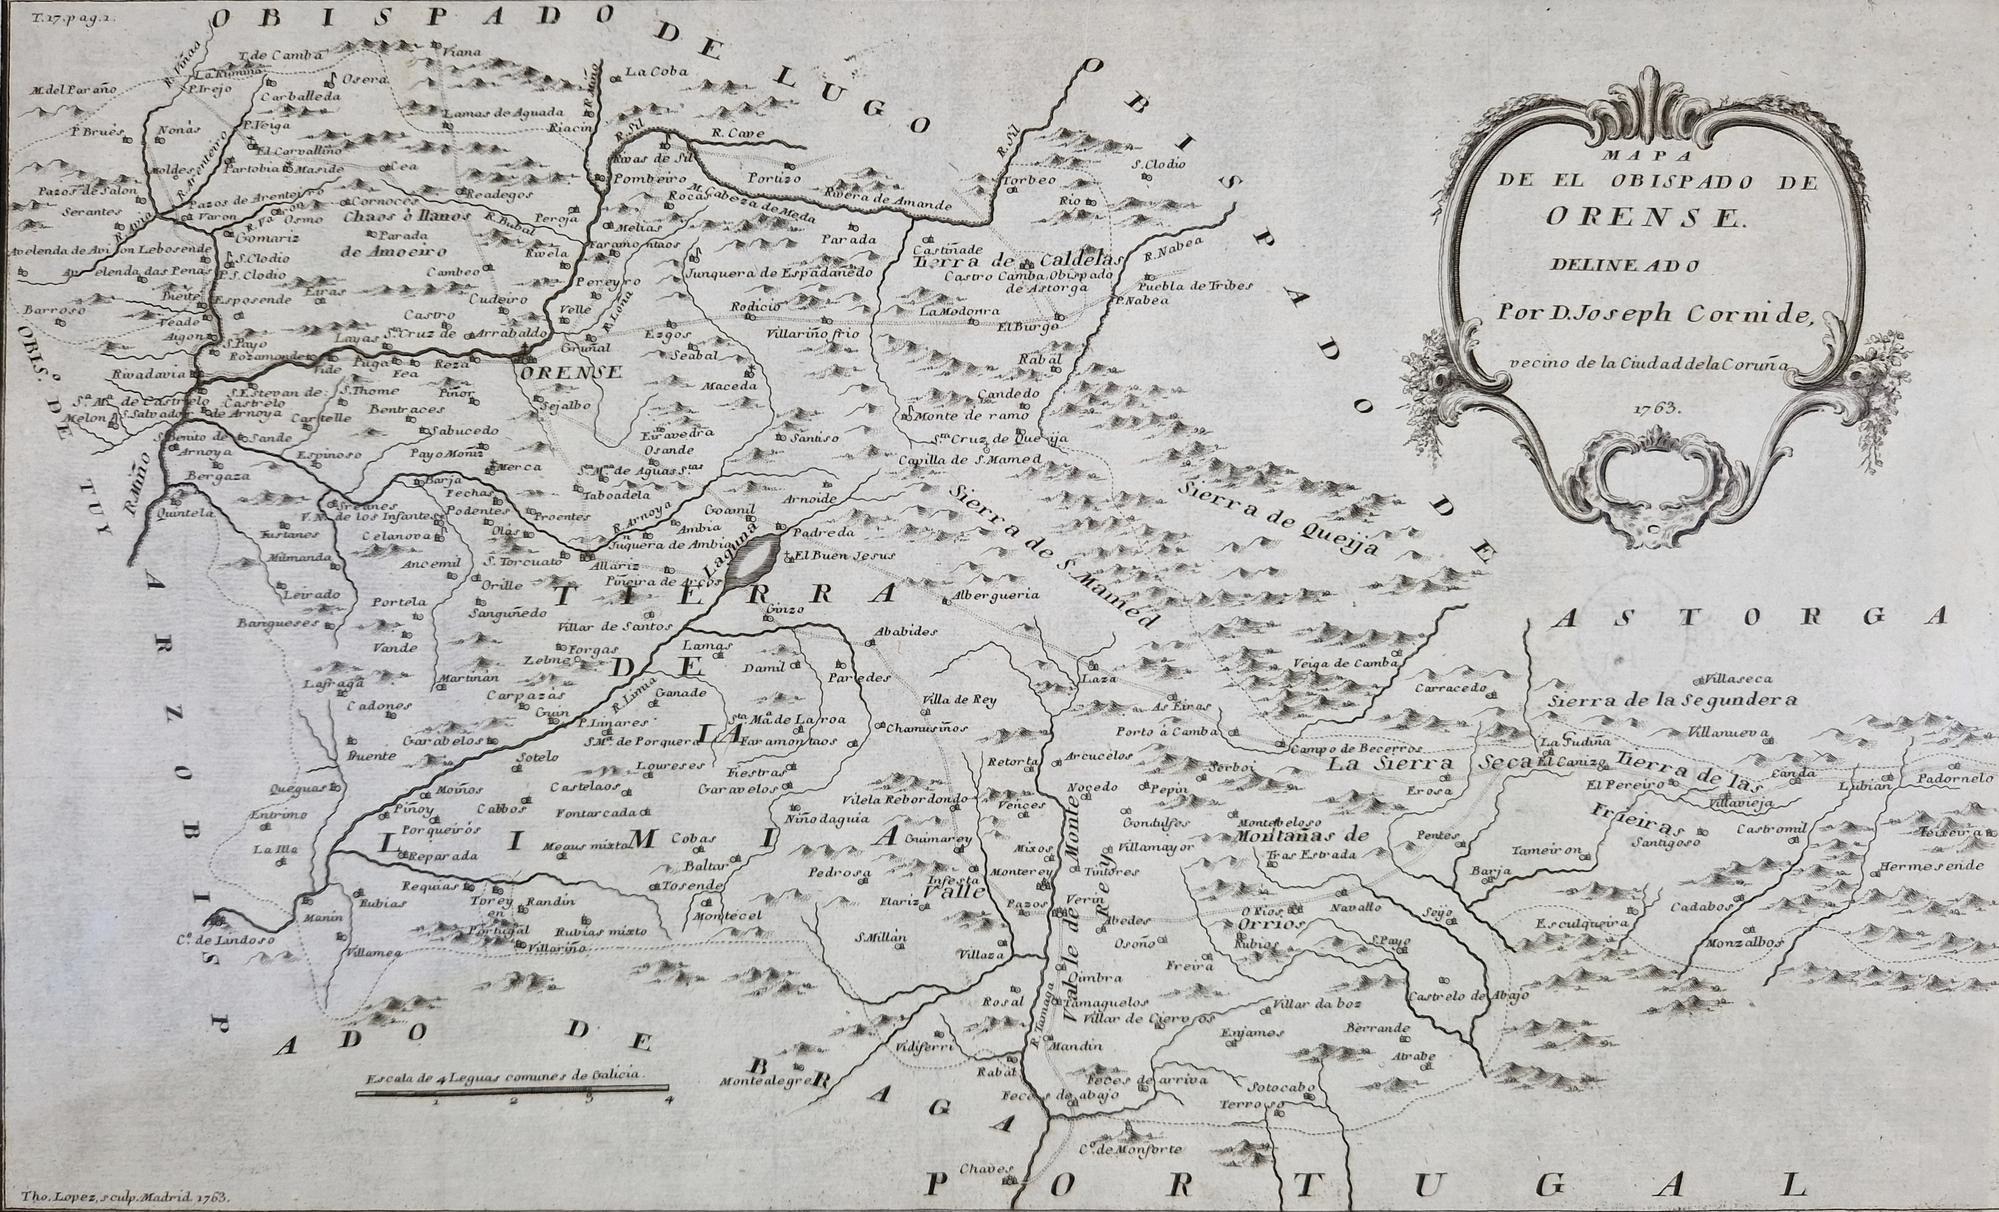 T.17. pag.1.
OBISPADO DE LUGO
OBISPADO DE ASTORGA
MAPA
DE EL OBISPADO DE
ORENSE.
DELINEADO
Por D. Joseph Cornide,
vecino de la Ciudad de la Coruña
1763.
R. Viñas
T. de Camba
Viana
La Coba
M. del Paraño
P. Irejo
Osera
Carballeda
R. Miño
Lamas de Aguada
P. Brués
Nonás
P. Veiga
Riacin
R. Sil
R. Cave
R. Sil
El Carvallino
Rivas de Sil
S. Clodio
R. Arenteiro
Partobia
Maside
Cea
Pombeiro
Portizo
Torbeo
Pazos de Salon
Pazos de Arenteiro
Cornoces
Readegos
M. Cabeza de Meda
Rivera de Amande
Rio
Serantes
Varon
Osmo
Chaos ò llanos
R. Bubal
Peroja
Rocas
R. Avia
Gomariz
Parada
Melias
Parada
Castiñade
R. Nabea
Lebosende
de Amoeiro
Rivela
Faramontaos
Tierra de Caldelas
S. Clodio
Cambeo
Junquera de Espadanedo
Castro Camba, Obispado
P. S. Clodio
Pereyro
de Astorga
Puebla de Tribes
Esposende
Eiras
Cudeiro
Velle
R. Loña
Rodicio
La Modorra
P. Nabea
Barroso
Veade
Castro
Villariño frio
El Burgo
OBIS.º DE TUY
Layas
Sta. Cruz de Arrabaldo
Ezgos
S. Payo
Gruñal
Seabal
Rabal
Rozamonde
Puga
Reza
ORENSE
Rivadavia
Fea
Maceda
Sta. Mª. de Castrelo
S. Estevan de
Castrelo
S. Thome
Piñor
Candedo
Melon
S. Salvador de Arnoya
Cartelle
Bentraces
Sejalbo
Monte de ramo
S. Benito de
Arnoya
Sande
Sabucedo
Eiravedra
Santiso
Sta. Cruz de Queija
Espinoso
Payo Moniz
Merca
Osande
Capilla de S. Mamed
R. Miño
Bergaza
Barja
Sta. Mª. de Aguas Stas
Arnoide
Sierra de S. Mamed
Sierra de Queija
Quintela
Fechas
Taboadela
V.ª N.ª de los Infantes
Podentes
Proentes
R. Arnoya
Goamil
Celanova
Olás
Ambia
Padreda
Milmanda
S. Torcuato
Juquera de Ambia
Laguna
El Buen Jesus
Ancemil
Allariz
Piñeira de Arcos
Leirado
Orille
TIERRA
Albergueria
Portela
Sanguñedo
Ginzo
ASTORGA
Bangueses
Villar de Santos
Ababides
Vande
Forgas
Lamas
DE
Damil
Laza
Veiga de Camba
Martiñan
Paredes
Villaseca
Carpazás
R. Limia
Ganade
Villa de Rey
Carracedo
Cadones
Guin
As Eiras
Sierra de la Segundera
P. Linares
Sta. Mª de La roa
Chamusiños
Porto à Camba
Villanueva
Garabelos
S. Mª. de Porquera
LA
Faramontaos
La Gudiña
Puente
Sotelo
Campo de Becerros
Loureses
Fiestras
Retorta
Arcucelos
La Sierra Seca
El Canizo
Tierra de las
Queguas
Castelaos
Garavelos
Serboi
Canda
Padornelo
Moiños
Vilela
Rebordondo
Nocedo
Pepin
Erosa
El Pereiro
Lubian
Entrimo
Piñoy
Cabbos
Fontarcada
Vences
Villavieja
Niñodaguia
Gondulfes
Montebeloso
Frieiras
Porqueirós
LIMIA
Guimarey
Montañas de
Pentes
Castromil
La Illa
Meaus mixto
Cobas
Villamayor
Santigoso
Reparada
Mixos
Tras Estrada
Tameiron
Baltar
Pedrosa
Monterey
Tintores
Barja
Hermesende
Requias
Tosende
Infesta
Valle
Rubias
Torey
en
Portugal
Randin
Flariz
Pazos
Verin
Cadabos
Manin
Montecel
O Rios
Navallo
Seijo
Cº. de Lindoso
Rubias mixto
Abedes
Orrios
Esculqueira
S. Millán
Osoño
Rubios
S. Payo
Monzalbos
Villamea
Villariño
Villaza
Freira
Oimbra
Valle de Monte Rey
Rosal
Tamaguelos
Villar da boz
Castrelo de Abajo
R. Tamaga
Villar de Ciervos
Enjames
Berrande
Vidiferri
Mandin
Atrabe
ARZOBISPADO DE BRAGA
Escala de 4 Leguas comunes de Galicia.
1 2 3 4
Montealegre
Rabál
Feces de arriva
Sotocabo
Feces de abajo
Terroso
Cº. de Monforte
Chaves
PORTUGAL
Tho. Lopez, sculp. Madrid. 1763.